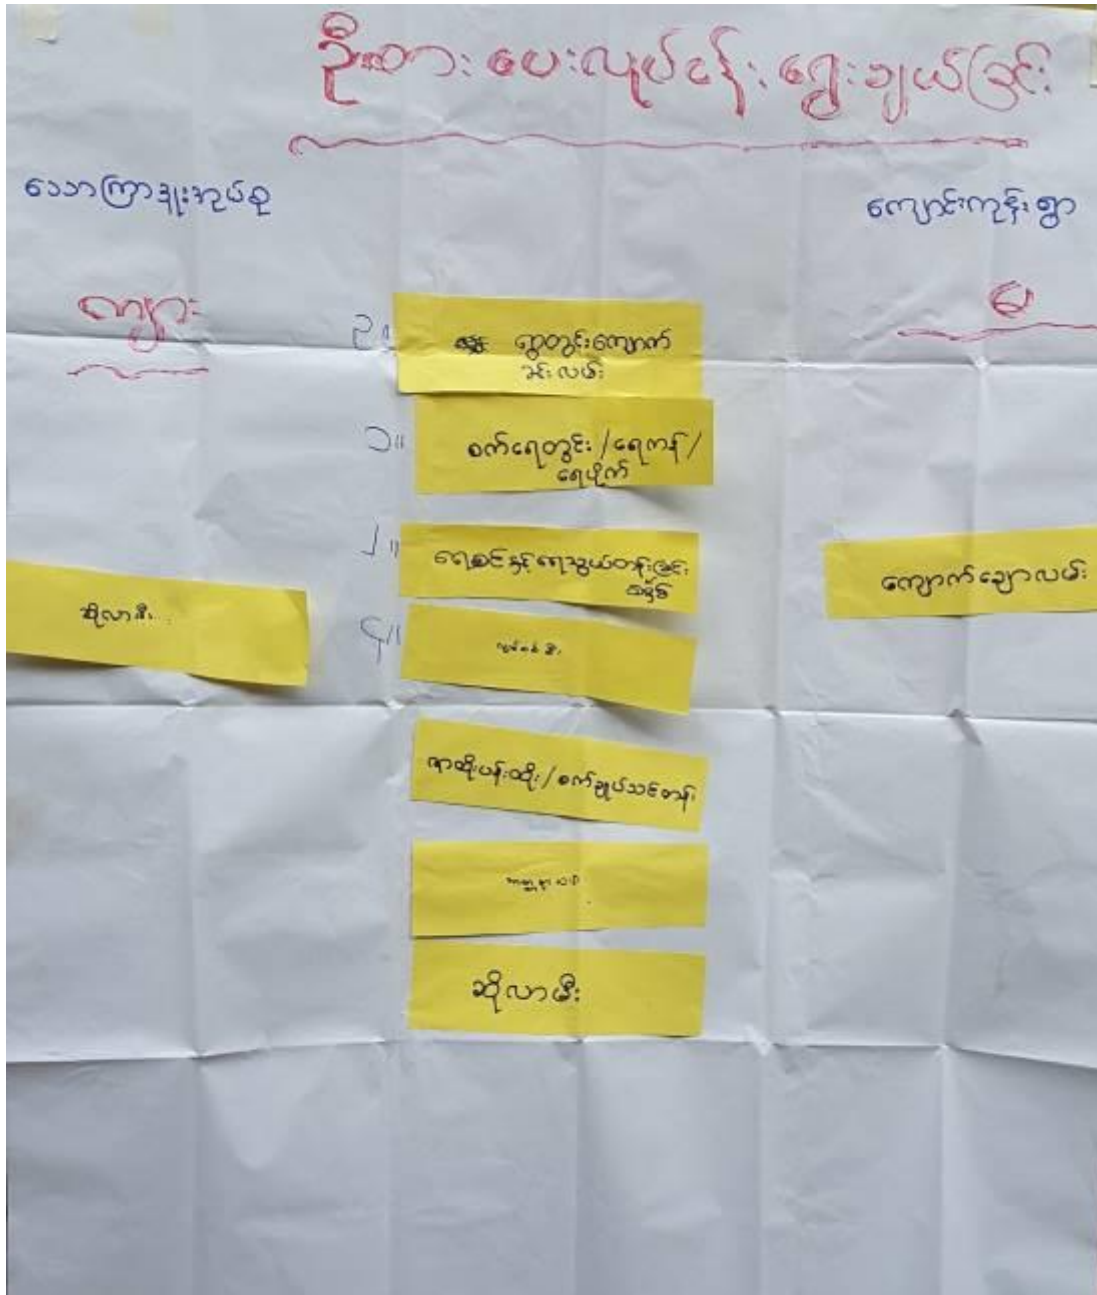 ဦးစားပေးလုပ်ငန်း ရွေးချယ်ခြင်း
သောကြာဒူးအုပ်စု
ကျောင်းကုန်းရွာ
ကျား
မ
၃။ ရွာတွင်းကျောက်
ခင်းလမ်း
၁။ စက်ရေတွင်း/ရေကန်/
ရေပိုက်
၂။ ရေစင်နှင့်ရေသွယ်တန်းခြင်း
စနစ်
ဆိုလာမီး
ကျောက်ချောလမ်း
၄။
စက်ချုပ်သင်တန်း
ဆိုလာမီး